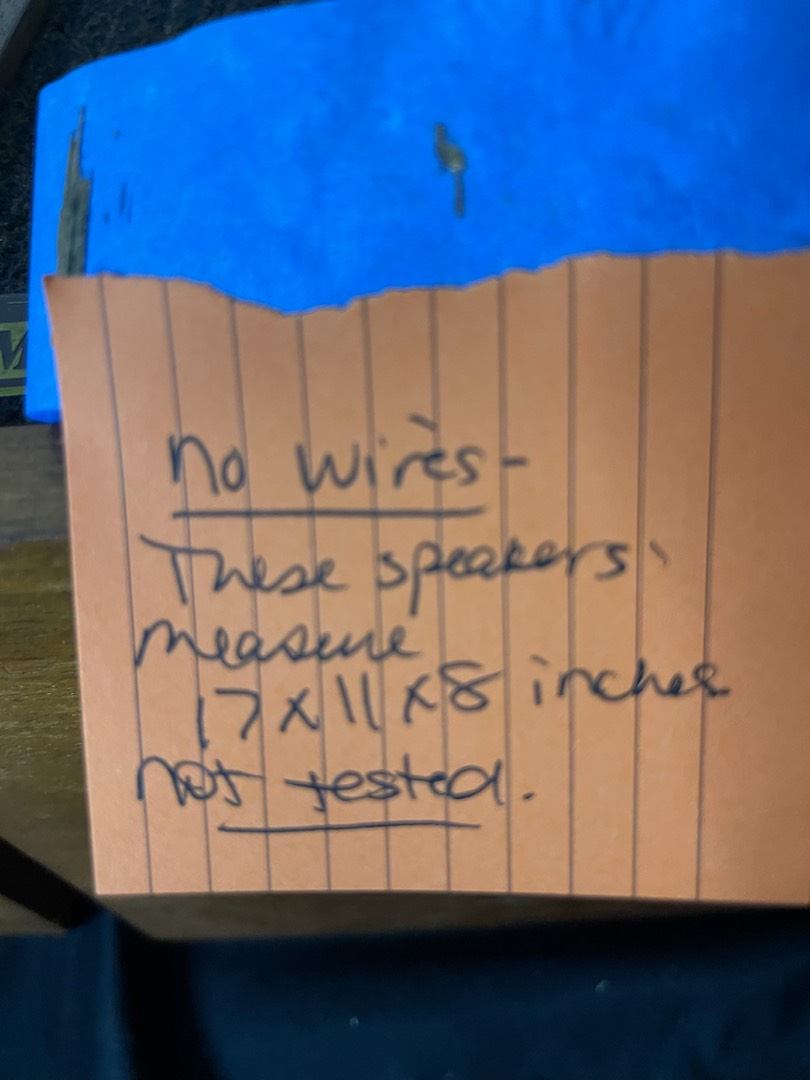 no wires-
These speakers
measure
17 x 11 x 8 inches
not tested.